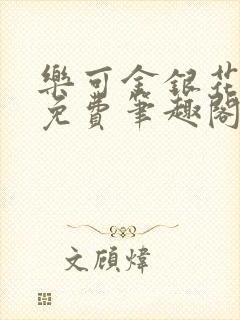 樂可金銀花
免費筆趣閣
文顾煒